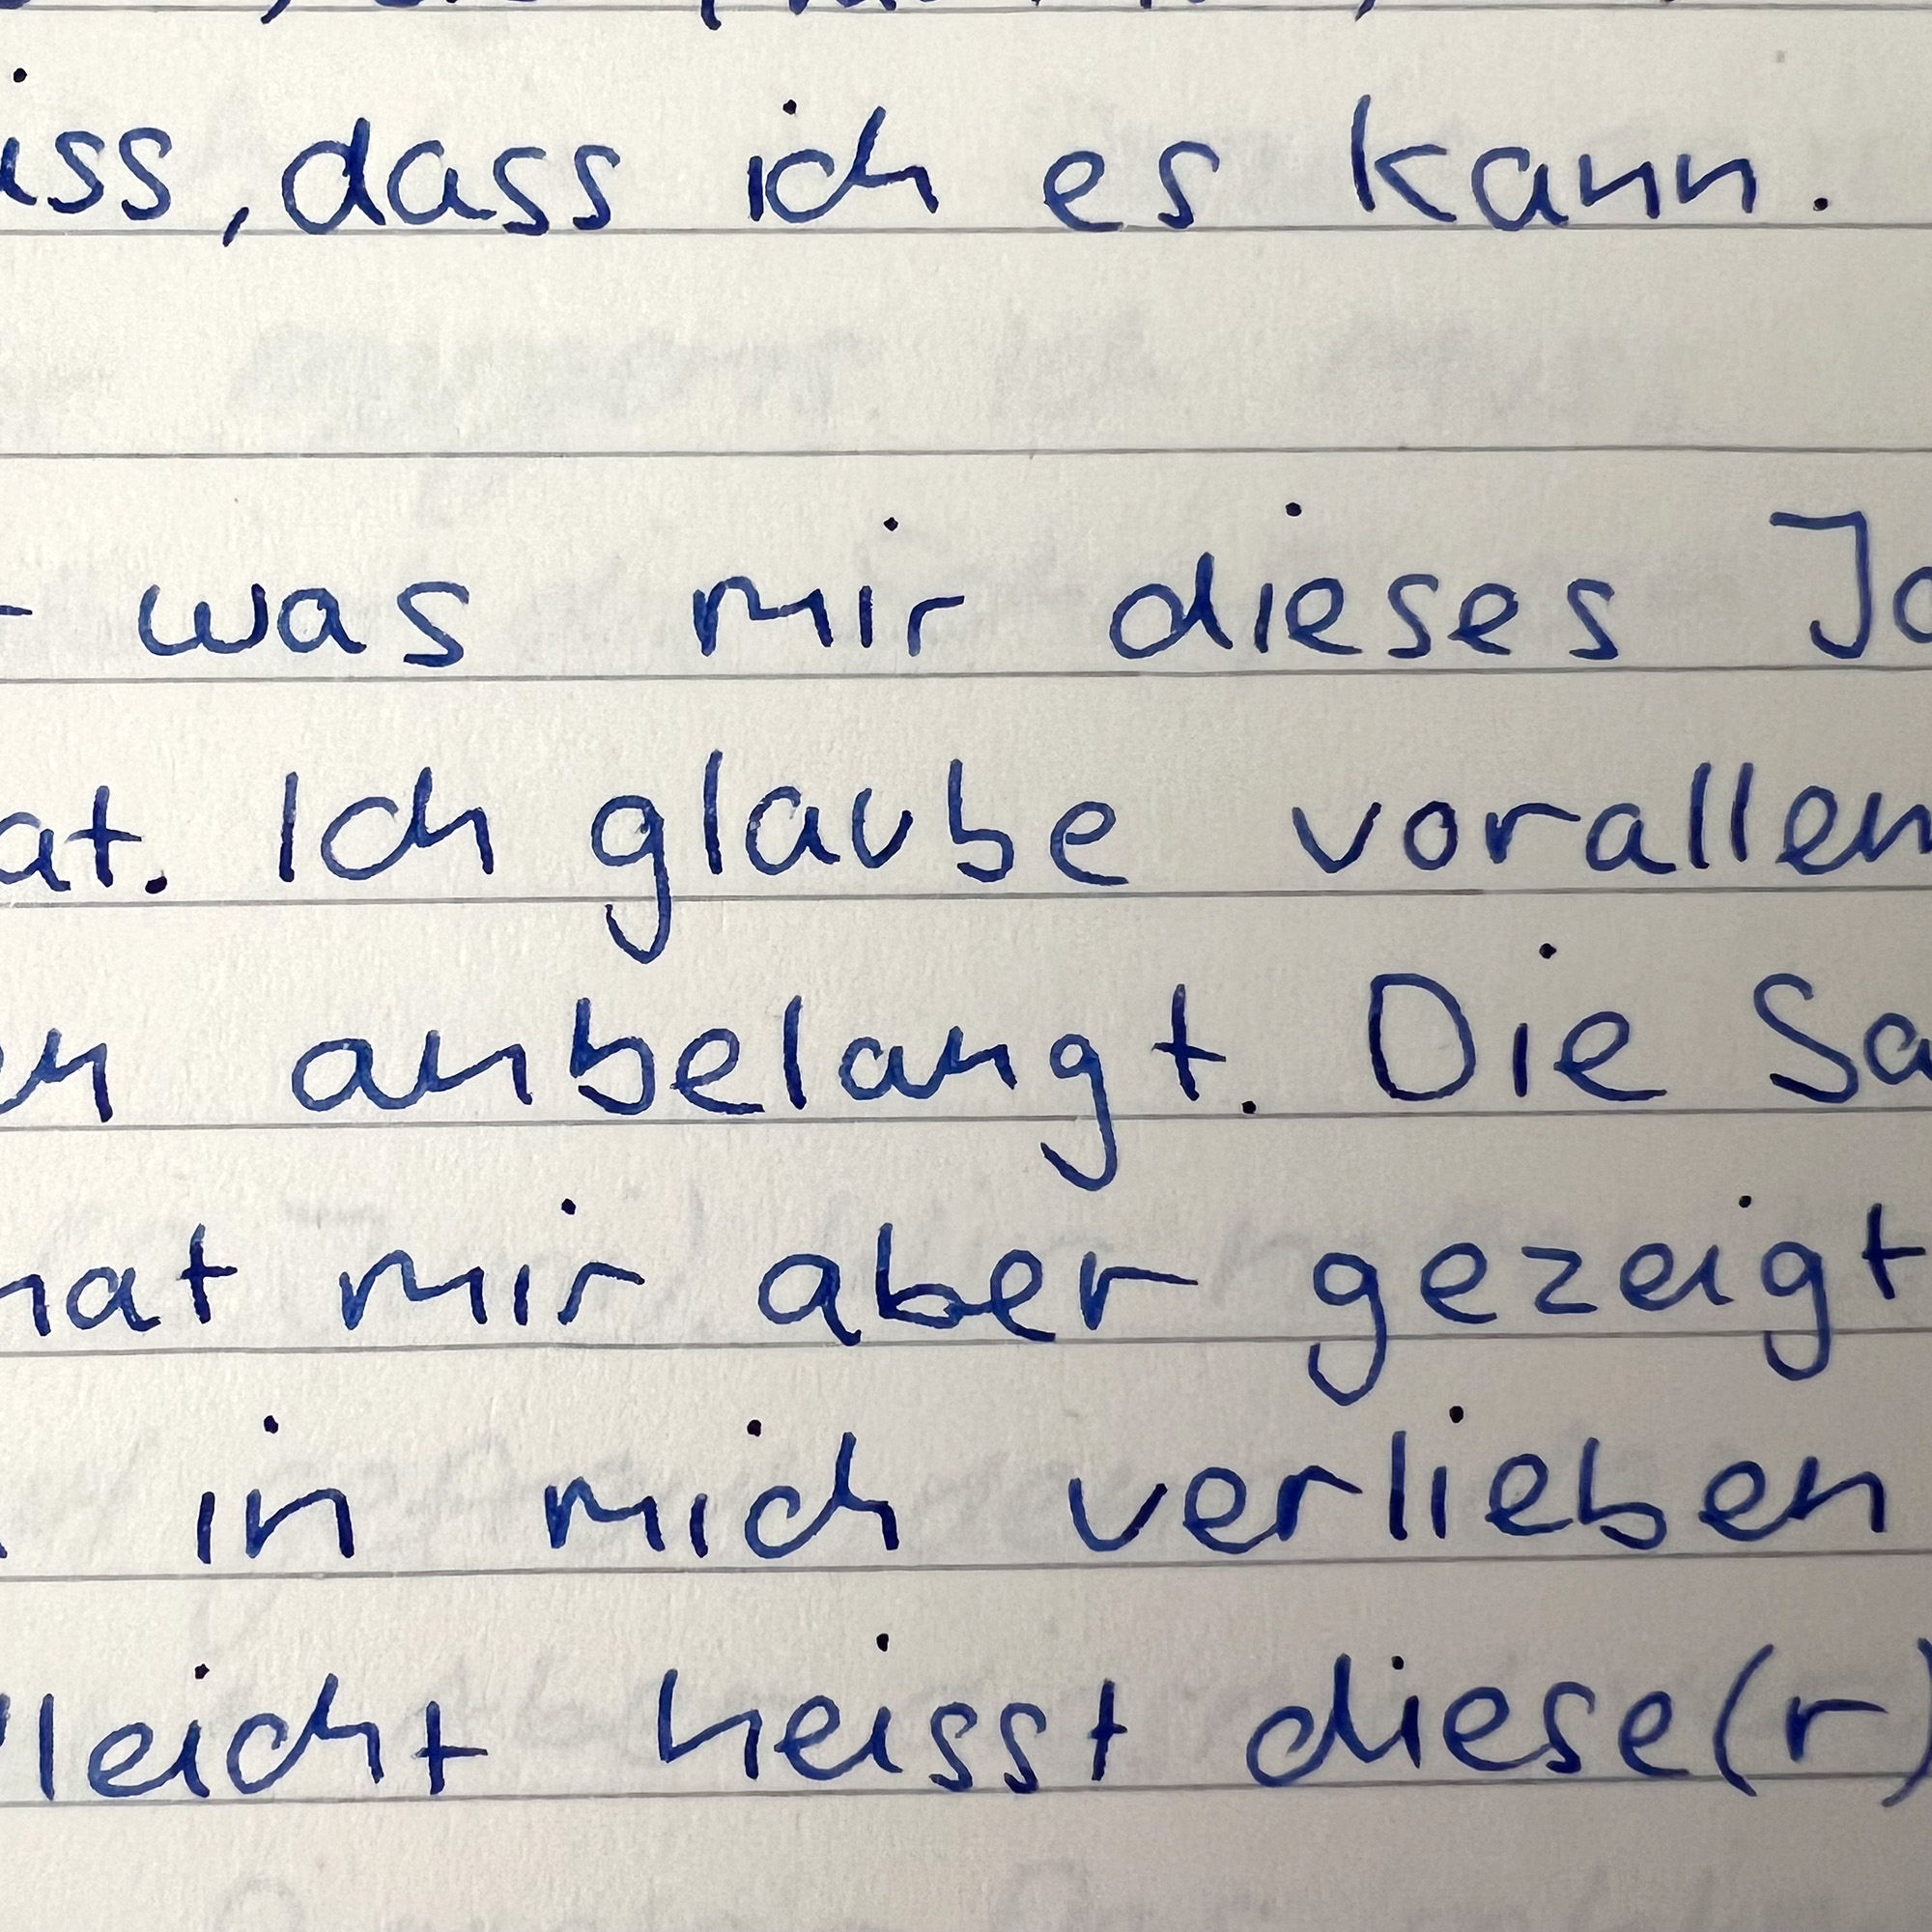 iss, dass ich es kann.
was mir dieses
at. Ich glaube vorallem
en anbelangt. Die
hat mir aber gezeigt
in mich verlieben
lleicht heisst diese(r)